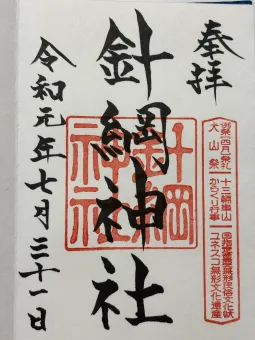 奉拝
犬山祭
十三輌車山
からくり行事
国指定重要無形民俗文化財
ユネスコ無形文化遺産
針綱神社
針綱
神社
令和元年七月三十一日